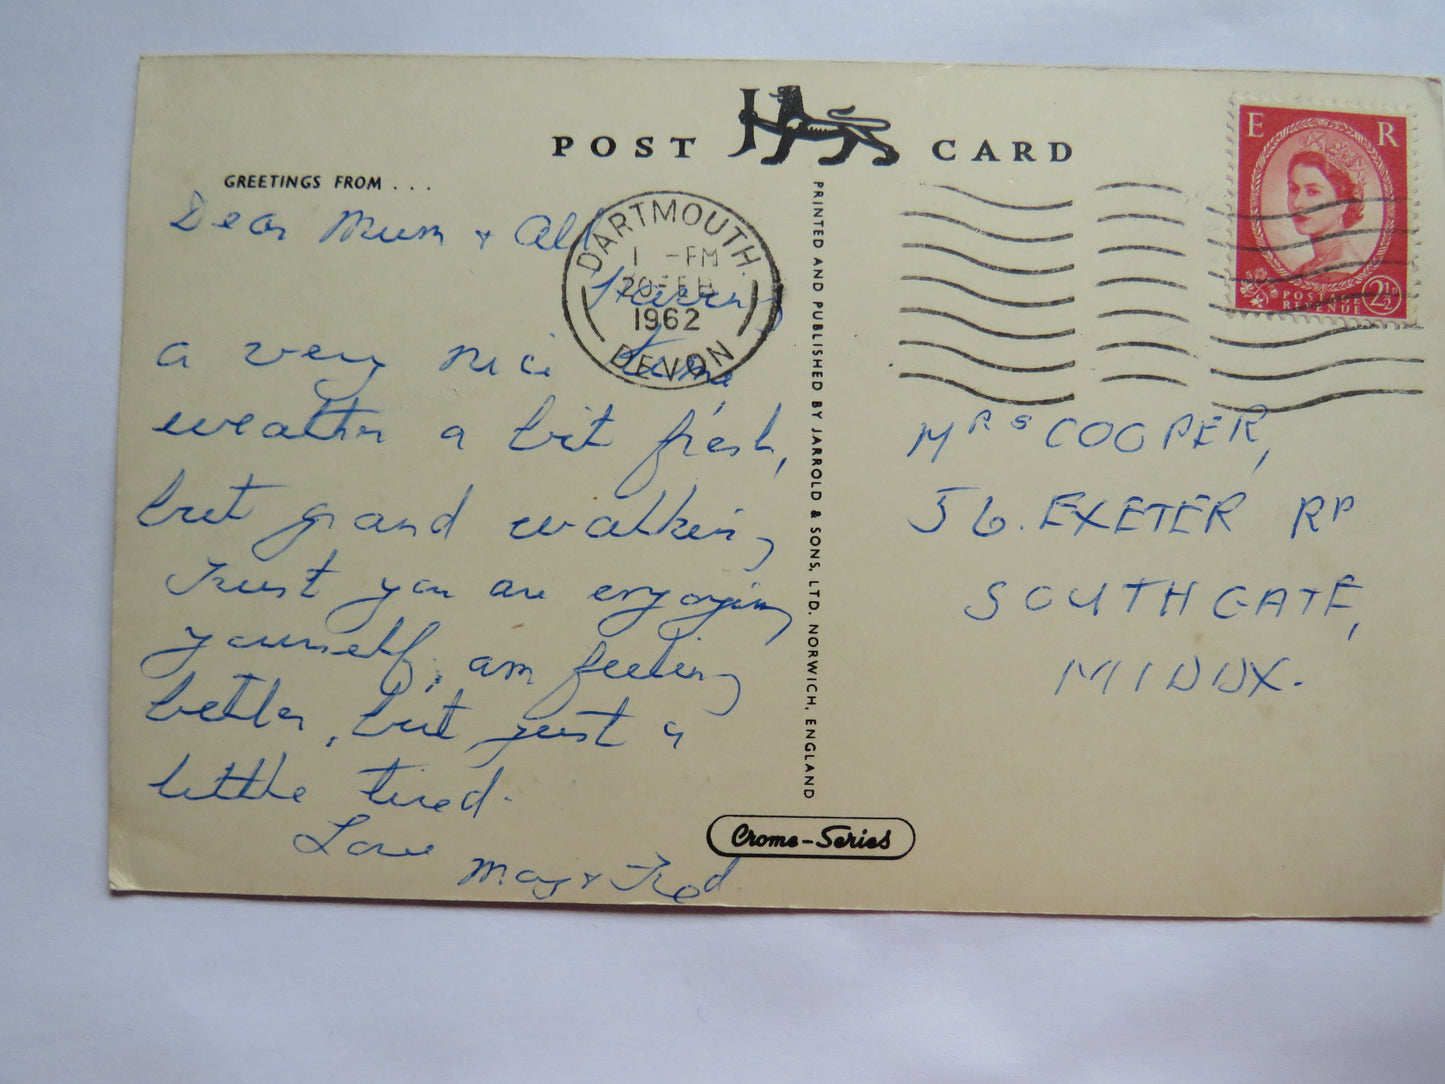 POST CARD
GREETINGS FROM . . .
Dear Mum & All
Having
a very nice time,
weather a bit fresh,
but grand walking
Trust you are enjoying
yourself, am feeling
better, but just a
little tired.
Love
May & Fred.
DARTMOUTH.
1 - PM
20 FEB
1962
DEVON
PRINTED AND PUBLISHED BY JARROLD & SONS, LTD. NORWICH, ENGLAND
Crome-Series
E R
POSTAGE
REVENUE
2½D
MRS COOPER,
56. EXETER RD
SOUTHGATE,
MIDDX.